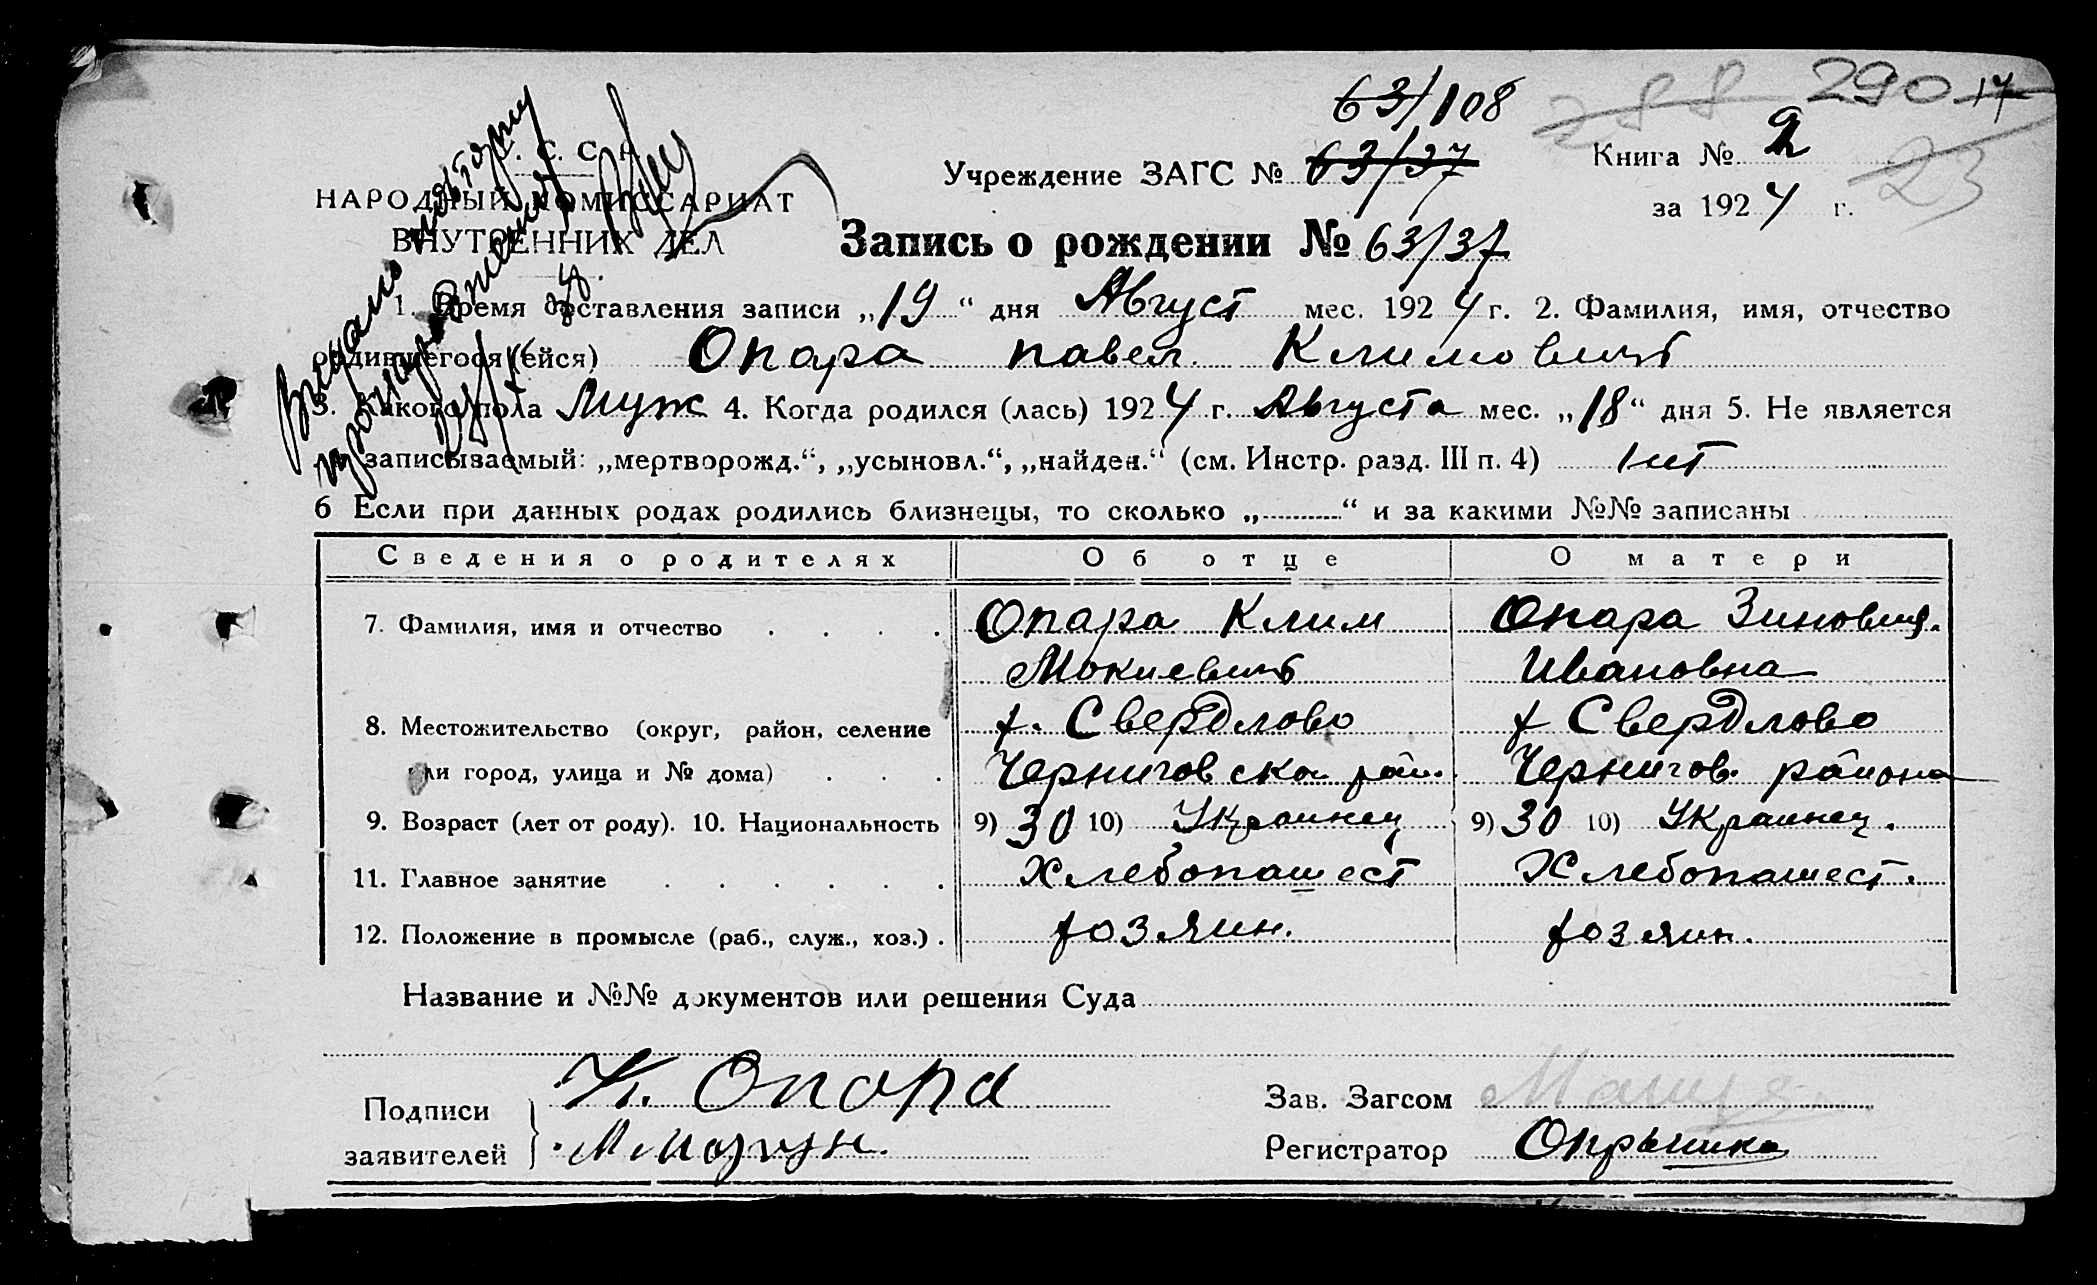 63/108
288 290 17
23
Учреждение ЗАГС № 63/37 Книга № 2
за 1924 г.
НАРОДНЫЙ КОМИССАРИАТ
ВНУТРЕННИХ ДЕЛ
Запись о рождении № 63/37
1. Время составления записи „19“ дня Август мес. 1924 г. 2. Фамилия, имя, отчество
родившегося (ейся) Опара павел Климовичь
3. Какого пола Муж 4. Когда родился (лась) 1924 г. Августа мес. „18“ дня 5. Не является
записываемый: „мертворожд.“, „усыновл.“, „найден.“ (см. Инстр. разд. III п. 4) нет
6 Если при данных родах родились близнецы, то сколько „ “ и за какими №№ записаны
Сведения о родителях Об отце О матери
7. Фамилия, имя и отчество Опара Клим Опара Зиновия.
Мокиевичь Ивановна
8. Местожительство (округ, район, селение х. Свердлово х Свердлово
или город, улица и № дома) Черниговской рай. Чернигов. района
9. Возраст (лет от роду). 10. Национальность 9) 30 10) Украинец 9) 30 10) Украинец.
11. Главное занятие Хлебопашест Хлебопашест.
12. Положение в промысле (раб., служ., хоз.) хозяин. хозяин.
Название и №№ документов или решения Суда
Подписи заявителей К. Опара
Зав. Загсом
Регистратор Опрышко